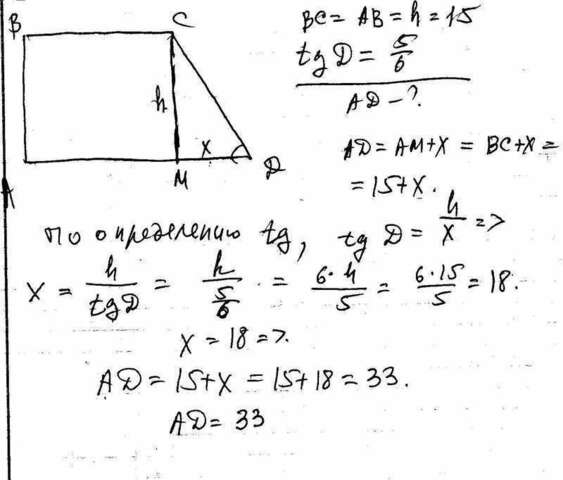 B
C
h
x
A
M
D
BC = AB = h = 15
tg D = 5/6
AD - ?
AD = AM + x = BC + x =
= 15 + x.
По определению tg, tg D = h/x =>
x = h/tg D = h/(5/6) = 6·h/5 = 6·15/5 = 18.
x = 18 =>.
AD = 15 + x = 15 + 18 = 33.
AD = 33